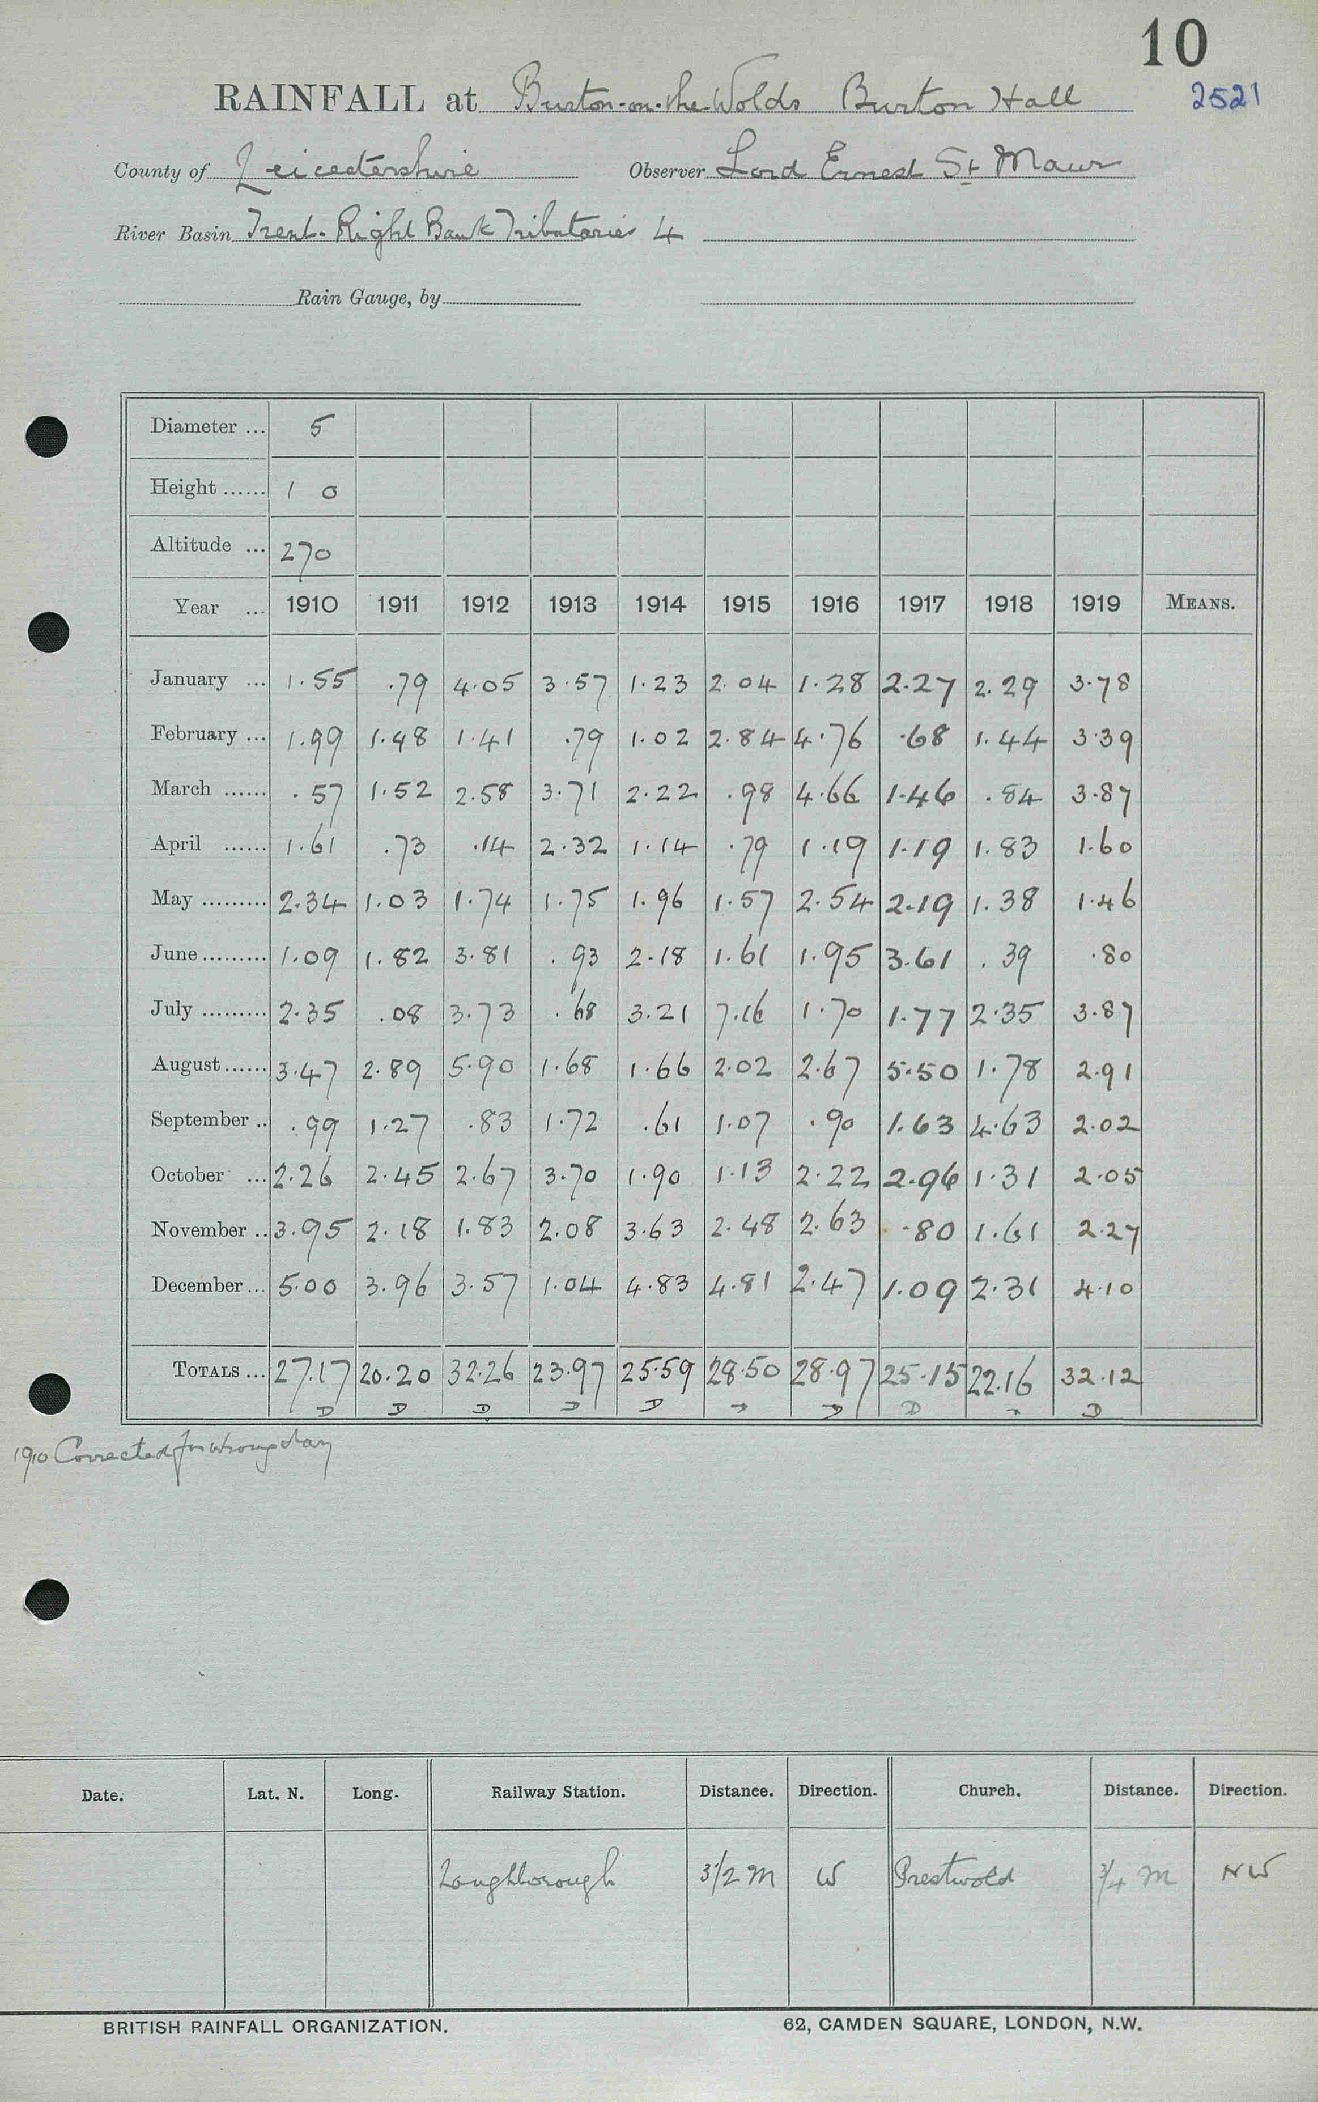 10
RAINFALL at Burton-on-the-Wolds Burton Hall 2521
County of Leicestershire Observer Lord Ernest St Maur
River Basin Trent. Right Bank Tributaries 4
Rain Gauge, by
Diameter ... 5
Height ...... 1 0
Altitude ... 270
Year ... 1910 1911 1912 1913 1914 1915 1916 1917 1918 1919 MEANS.
January ... 1.55 .79 4.05 3.57 1.23 2.04 1.28 2.27 2.29 3.78
February ... 1.99 1.48 1.41 .79 1.02 2.84 4.76 .68 1.44 3.39
March ...... .57 1.52 2.58 3.71 2.22 .98 4.66 1.46 .84 3.87
April ...... 1.61 .73 .14 2.32 1.14 .79 1.19 1.19 1.83 1.60
May ......... 2.34 1.03 1.74 1.75 1.96 1.57 2.54 2.19 1.38 1.46
June ......... 1.09 1.82 3.81 .93 2.18 1.61 1.95 3.61 .39 .80
July ......... 2.35 .08 3.73 .68 3.21 7.16 1.70 1.77 2.35 3.87
August ...... 3.47 2.89 5.90 1.68 1.66 2.02 2.67 5.50 1.78 2.91
September .. .99 1.27 .83 1.72 .61 1.07 .90 1.63 4.63 2.02
October ... 2.26 2.45 2.67 3.70 1.90 1.13 2.22 2.96 1.31 2.05
November .. 3.95 2.18 1.83 2.08 3.63 2.48 2.63 .80 1.61 2.27
December ... 5.00 3.96 3.57 1.04 4.83 4.81 2.47 1.09 2.31 4.10
TOTALS ... 27.17 20.20 32.26 23.97 25.59 28.50 28.97 25.15 22.16 32.12
D D D D D D D D
1910 Corrected for wrong day
Date. Lat. N. Long. Railway Station. Distance. Direction. Church. Distance. Direction.
Loughborough 3 1/2 m W Prestwold 3/4 m NW
BRITISH RAINFALL ORGANIZATION. 62, CAMDEN SQUARE, LONDON, N.W.